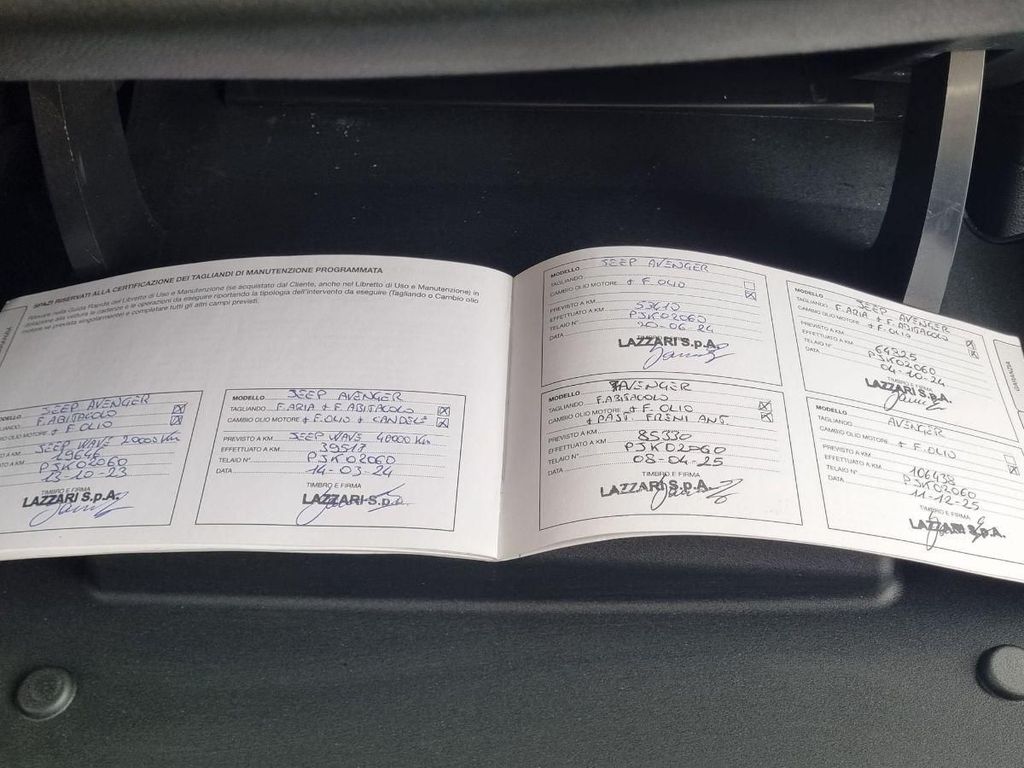 SPAZI RISERVATI ALLA CERTIFICAZIONE DEI TAGLIANDI DI MANUTENZIONE PROGRAMMATA
Rilevare nella Guida Rapida del Libretto di Uso e Manutenzione (se acquistato dal Cliente, anche nel Libretto di Uso e Manutenzione) in
dotazione alla vettura le cadenze e le operazioni da eseguire riportando la tipologia dell'intervento da eseguire (Tagliando o Cambio olio
motore se prevista singolarmente) e completare tutti gli altri campi previsti.
MODELLO JEEP AVENGER
F. ABITACOLO
OLIO MOTORE + F. OLIO
A KM JEEP WAVE 20000 Km
19646
PJK02060
TIMBRO E FIRMA
LAZZARI S.p.A.
MODELLO JEEP AVENGER
TAGLIANDO F. ARIA + F. ABITACOLO
CAMBIO OLIO MOTORE + F. OLIO + CANDELE
PREVISTO A KM JEEP WAVE 40000 Km
EFFETTUATO A KM 39517
TELAIO N° PJK02060
DATA 14-03-24
TIMBRO E FIRMA
LAZZARI S.p.A.
MODELLO JEEP AVENGER
TAGLIANDO
CAMBIO OLIO MOTORE + F. OLIO
PREVISTO A KM
EFFETTUATO A KM 53610
TELAIO N° PJK02060
DATA 20-06-24
LAZZARI S.p.A.
MODELLO JEEP AVENGER
TAGLIANDO F. ARIA + F. ABITACOLO
CAMBIO OLIO MOTORE + F. OLIO
PREVISTO A KM
EFFETTUATO A KM 64325
TELAIO N° PJK02060
DATA 04-10-24
LAZZARI S.p.A.
MODELLO AVENGER
TAGLIANDO F. ABITACOLO
CAMBIO OLIO MOTORE + F. OLIO
+ PAST. FRENI ANT.
PREVISTO A KM
EFFETTUATO A KM 85330
TELAIO N° PJK02060
DATA 08-04-25
TIMBRO E FIRMA
LAZZARI S.p.A.
MODELLO AVENGER
TAGLIANDO
CAMBIO OLIO MOTORE + F. OLIO
PREVISTO A KM
EFFETTUATO A KM 106438
TELAIO N° PJK02060
DATA 11-12-25
TIMBRO E FIRMA
LAZZARI S.p.A.
GARANZIA